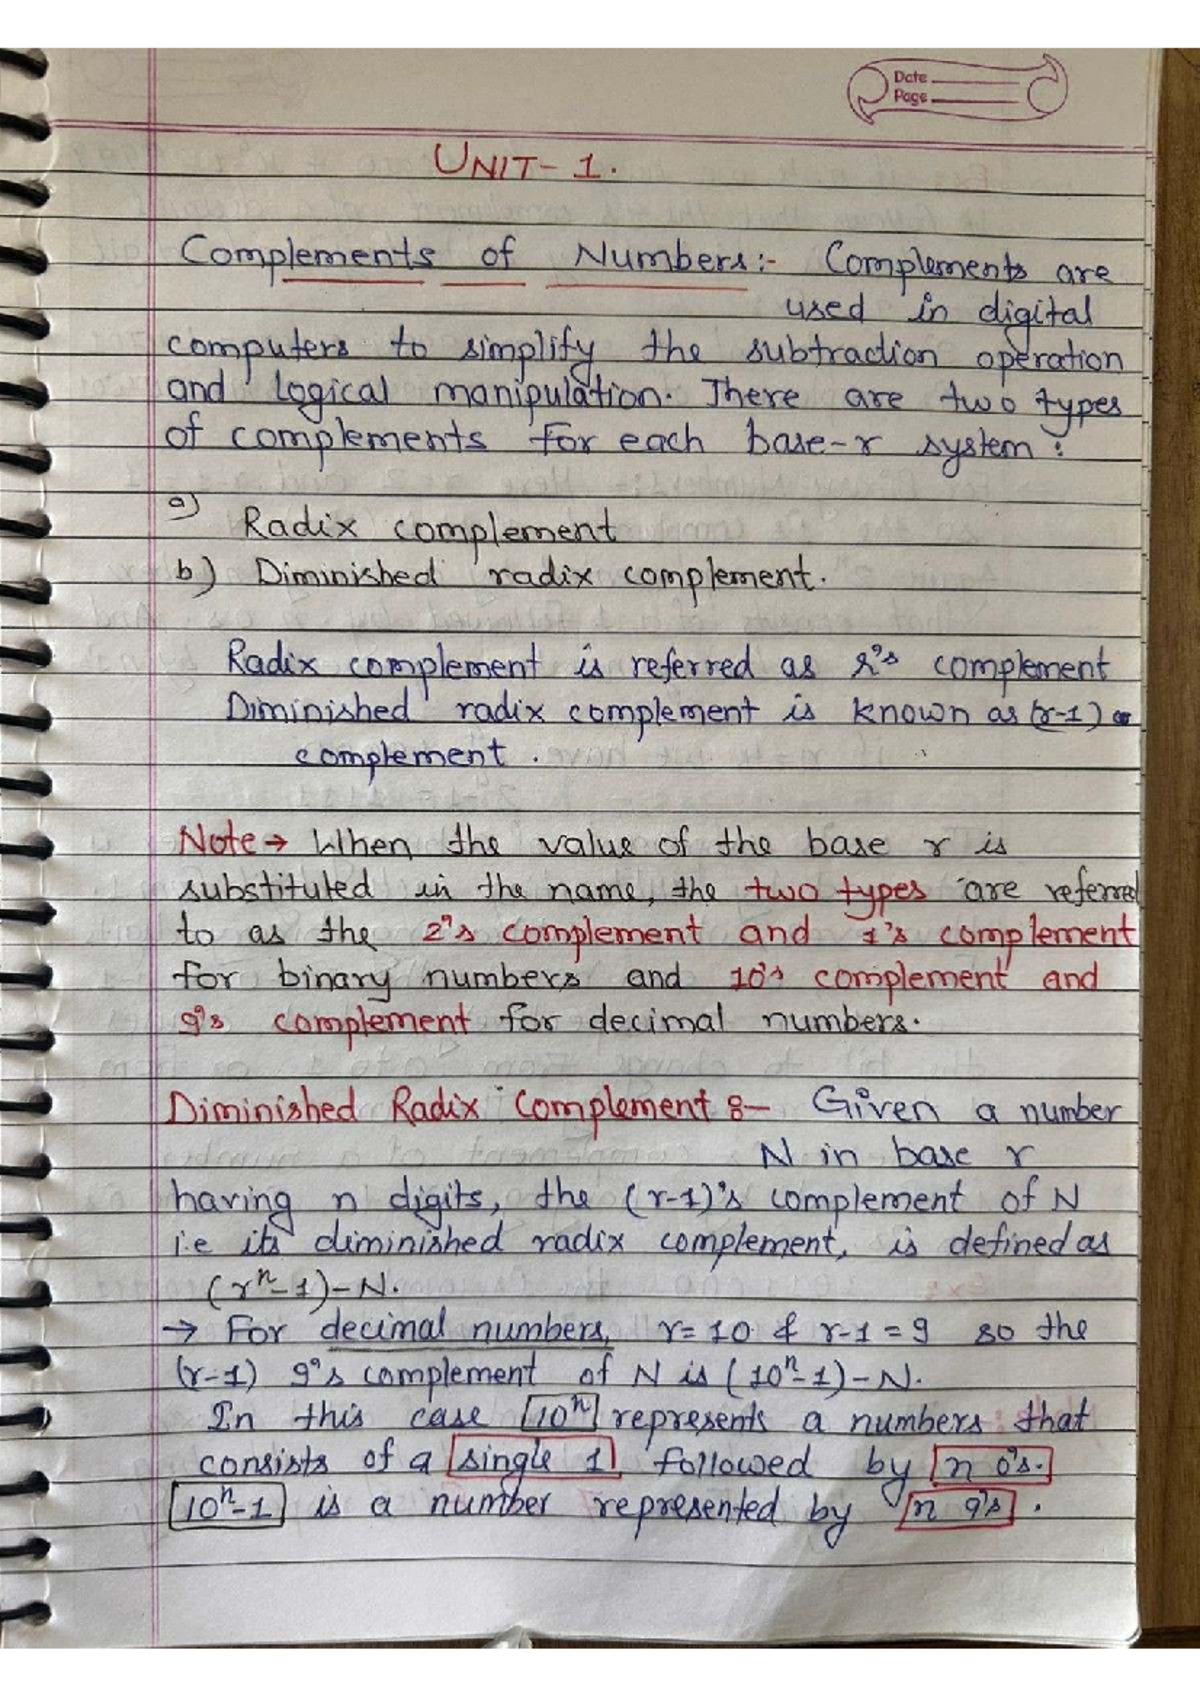 Date
Page
UNIT-1.
Complements of Numbers:- Complements are
used in digital
computers to simplify the subtraction operation
and logical manipulation. There are two types
of complements for each base-r system:
a)
Radix complement
b) Diminished radix complement.
Radix complement is referred as r's complement
Diminished radix complement is known as (r-1)
complement.
Note→ When the value of the base r is
substituted in the name, the two types are referred
to as the 2's complement and 1's complement
for binary numbers and 10's complement and
9's complement for decimal numbers.
Diminished Radix Complement :- Given a number
N in base r
having n digits, the (r-1)'s complement of N
i.e its diminished radix complement, is defined as
(rⁿ-1)-N.
→ For decimal numbers, r=10 & r-1=9 so the
(r-1) 9's complement of N is (10ⁿ-1)-N.
In this case 10ⁿ represents a numbers that
consists of a single 1 followed by n 0's.
10ⁿ-1 is a number represented by n 9's.